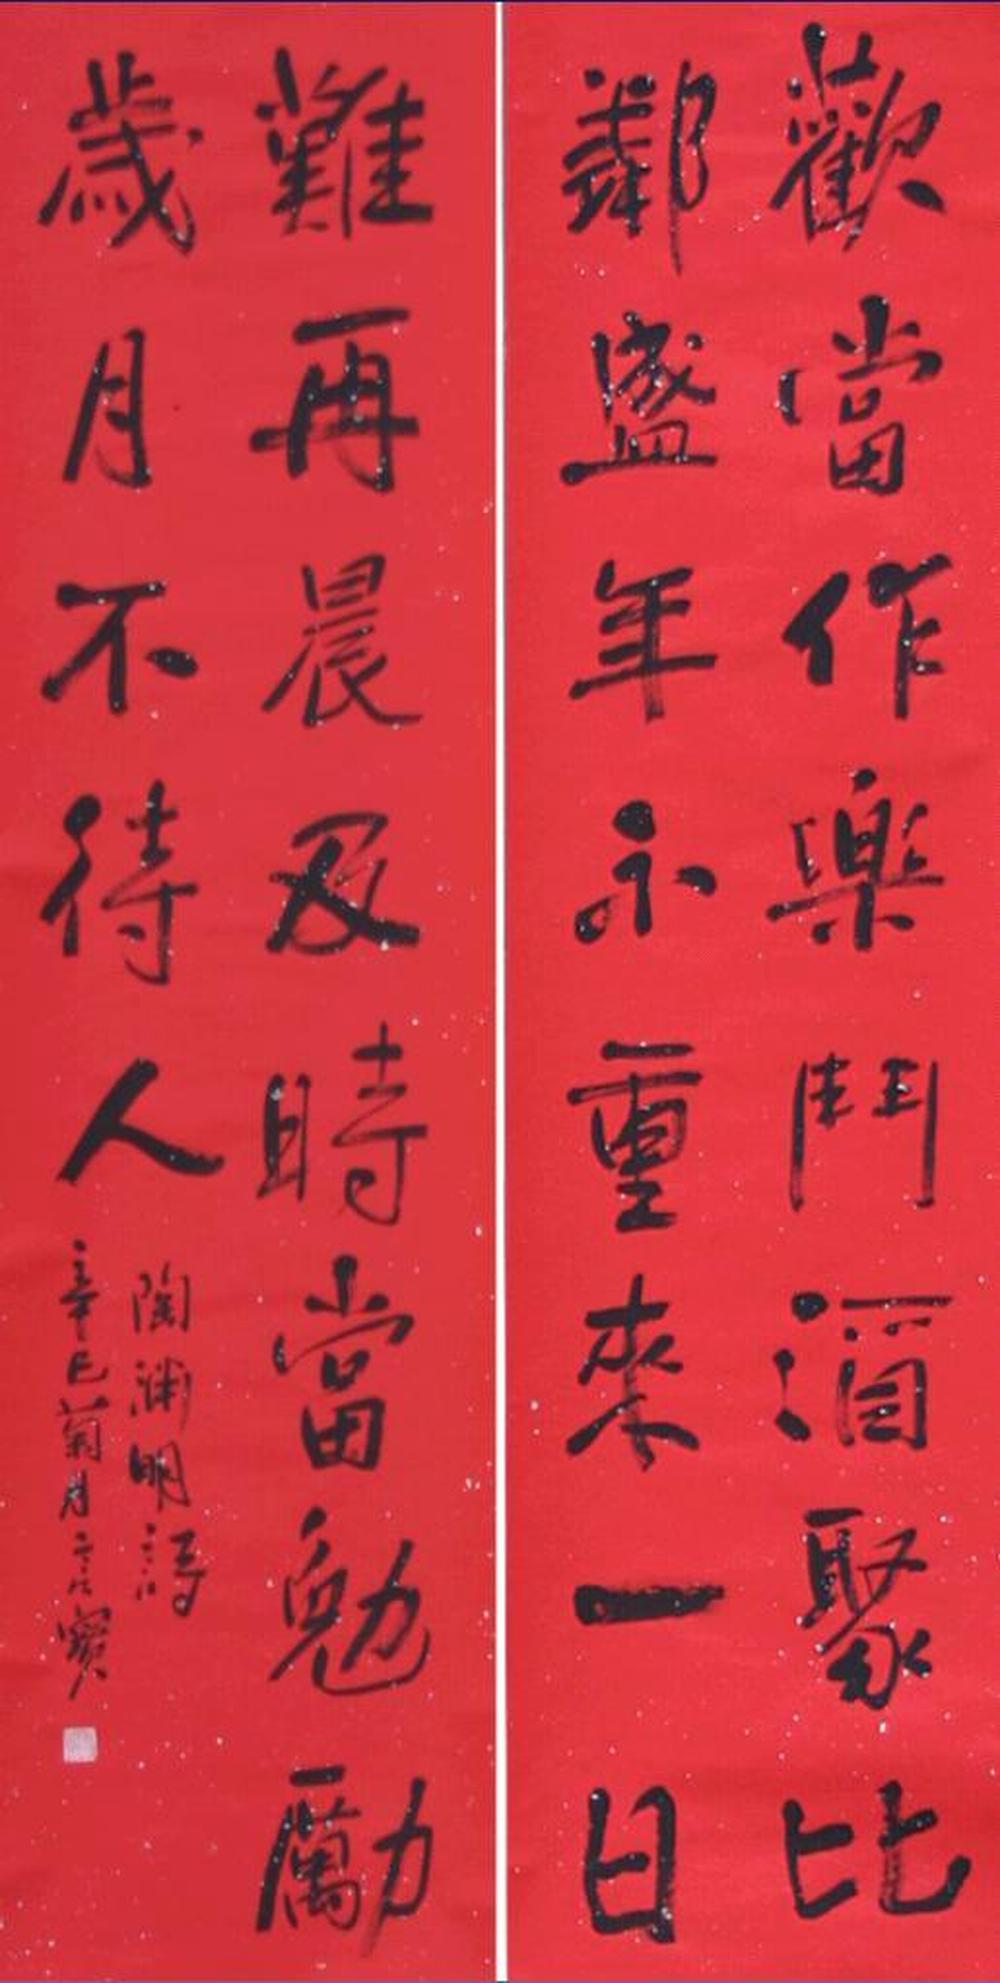 歡當作樂鬥酒聚比
鄰盛年不重來一日
難再晨及時當勉勵
歲月不待人
陶淵明詩
辛巳菊月寶